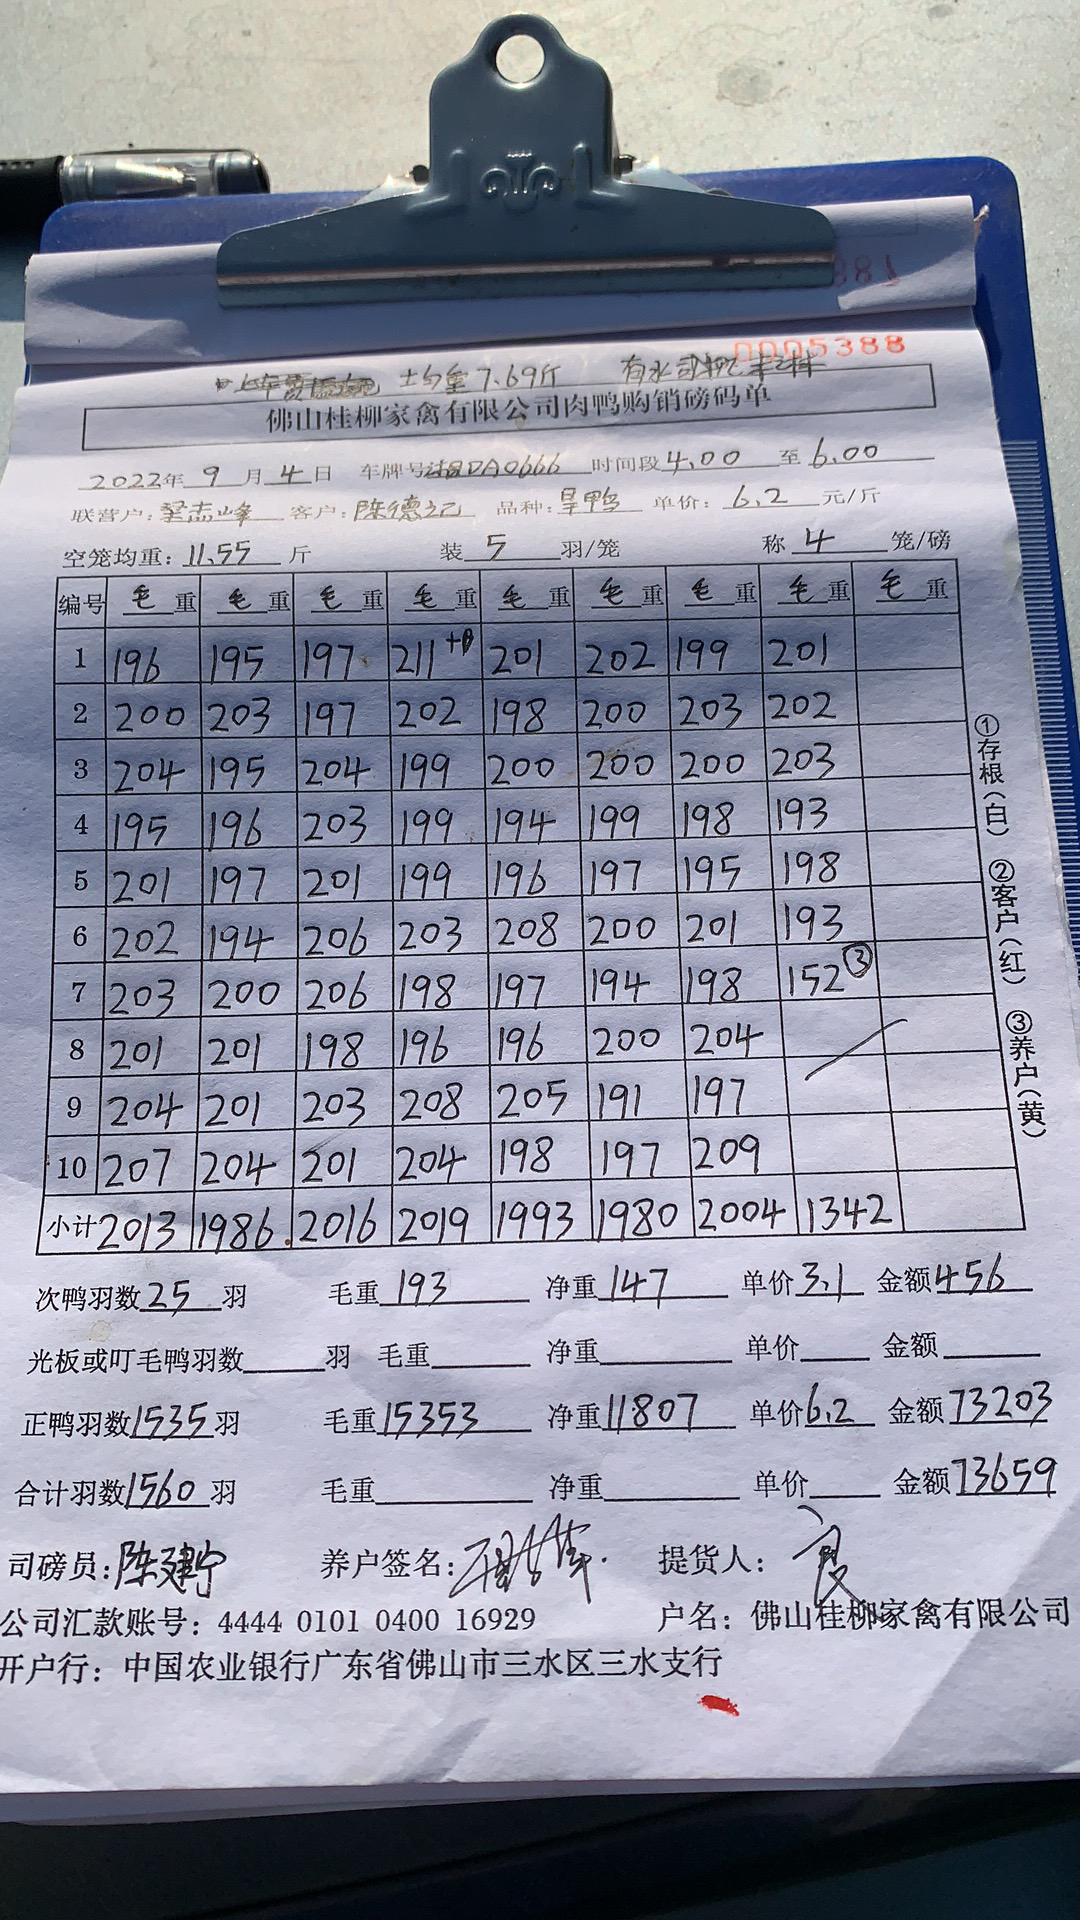 0005388
均重7.69斤
佛山桂柳家禽有限公司肉鸭购销磅码单
2022年 9 月 4 日 车牌号 DA0666 时间段 4.00 至 6.00
联营户: 梁志峰 客户: 陈德记 品种: 旱鸭 单价: 6.2 元/斤
空笼均重: 11.55 斤 装 5 羽/笼 称 4 笼/磅
编号 毛 重 毛 重 毛 重 毛 重 毛 重 毛 重 毛 重 毛 重 毛 重
1 196 195 197 211 201 202 199 201
2 200 203 197 202 198 200 203 202
3 204 195 204 199 200 200 200 203
4 195 196 203 199 194 199 198 193
5 201 197 201 199 196 197 195 198
6 202 194 206 203 208 200 201 193
7 203 200 206 198 197 194 198 152③
8 201 201 198 196 196 200 204
9 204 201 203 208 205 191 197
10 207 204 201 204 198 197 209
小计 2013 1986 2016 2019 1993 1980 2004 1342
①存根(白) ②客户(红) ③养户(黄)
次鸭羽数 25 羽 毛重 193 净重 147 单价 3.1 金额 456
光板或叮毛鸭羽数 羽 毛重 净重 单价 金额
正鸭羽数 1535 羽 毛重 15353 净重 11807 单价 6.2 金额 73203
合计羽数 1560 羽 毛重 净重 单价 金额 73659
司磅员: 陈建宁 养户签名: 提货人:
公司汇款账号: 4444 0101 0400 16929 户名: 佛山桂柳家禽有限公司
开户行: 中国农业银行广东省佛山市三水区三水支行